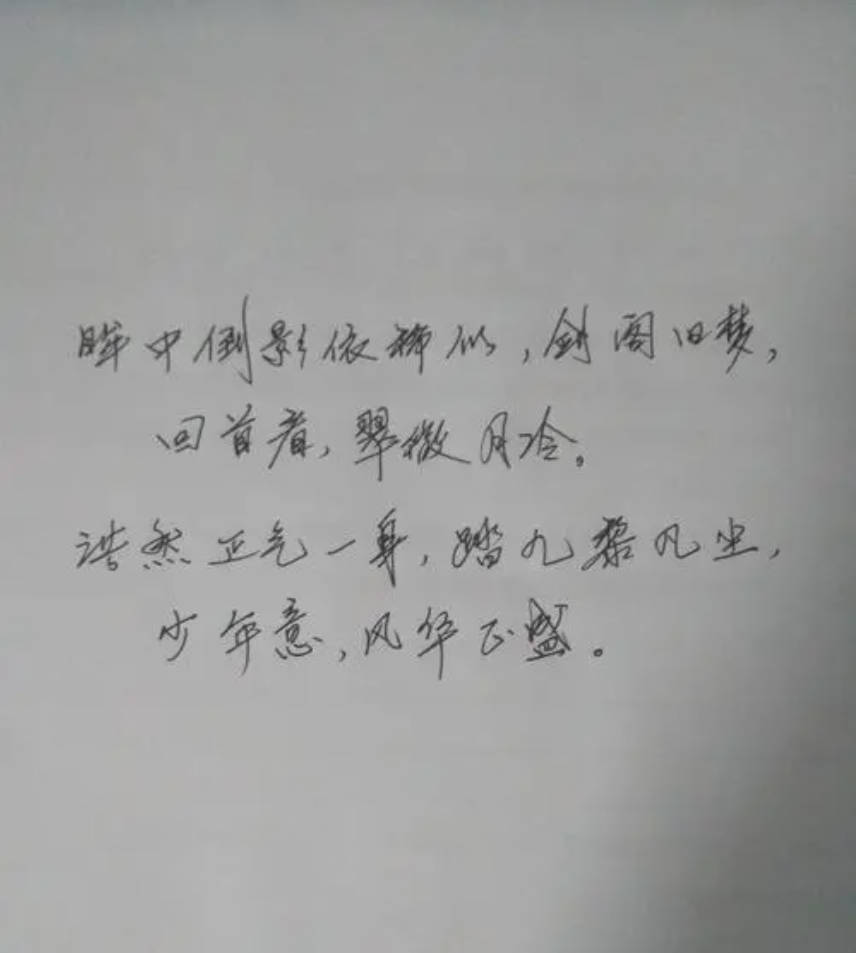 眸中倒影依稀似，剑阁旧梦，
回首看，翠微月冷。
浩然正气一身，踏九黎凡尘，
少年意，风华正盛。